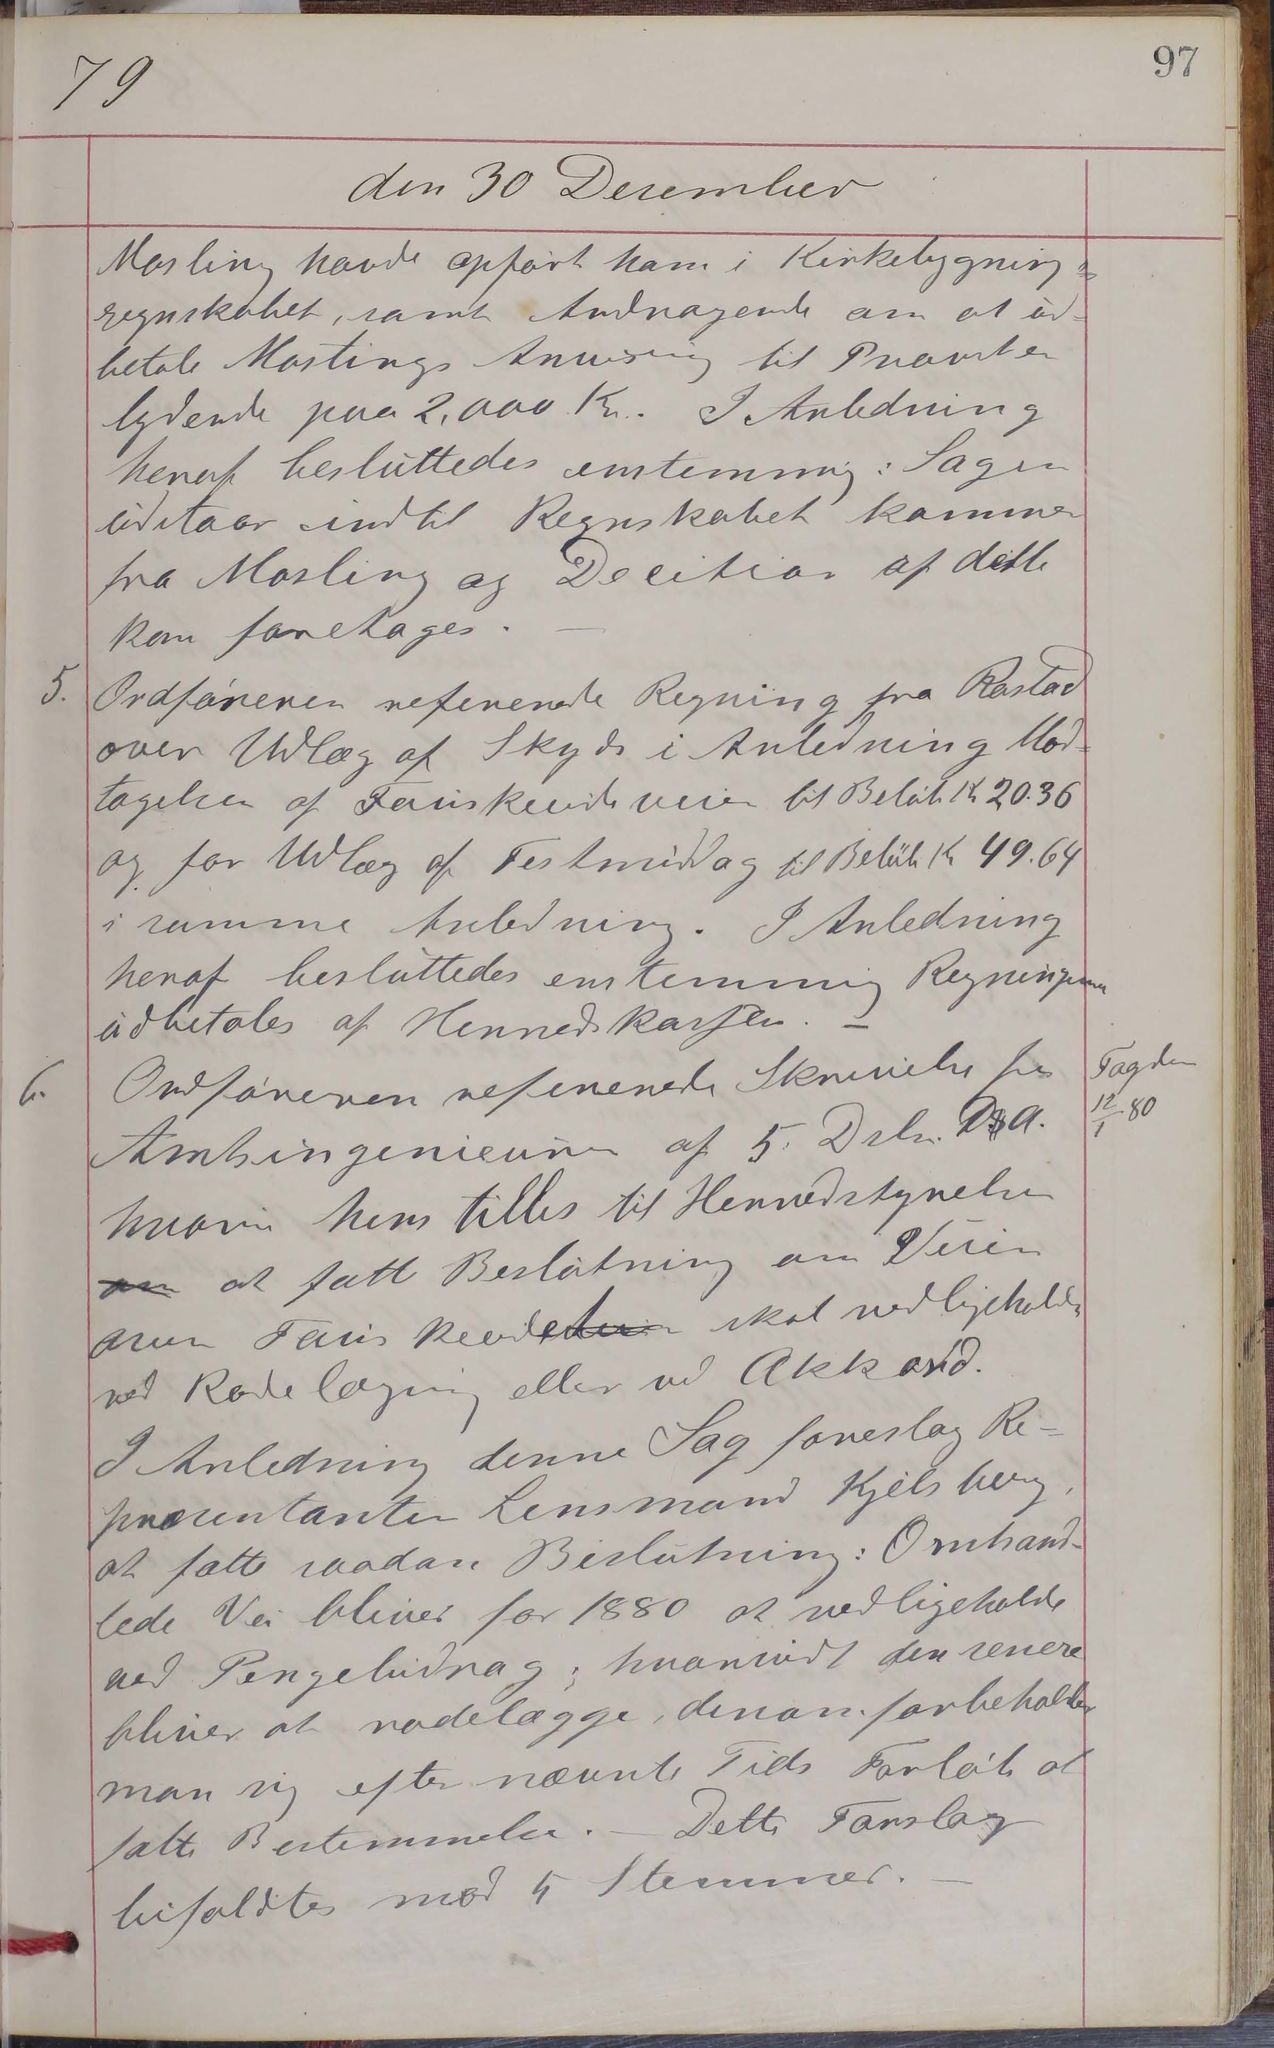 79
97
den 30 Desember
Mosling havde opført ham i Kirkebygnings
regnskabet, samt Andragende om at ud-
betale Moslings Anvisning til Provsten
lydende paa 2,000 Kr. I Anledning
heraf besluttedes enstemmig: Sagen
udstaar indtil Regnskabet kommer
fra Mosling og Decition af dette
kan foretages. —
5. Ordføreren refererede Regning fra Rastad
over Udlæg af Skyds i Anledning Mod-
tagelsen af Fauskeeideveien til Beløb Kr 20.36
og for Udlæg af Festmiddag til Beløb Kr 49.64
i samme Anledning. I Anledning
heraf besluttedes enstemmig Regningerne
udbetales af Herredskassen. —
6. Ordføreren refererede Skrivelse fra
Amtsingeniøren af 5. Dsbr. D. A.
hvori henstilles til Herredstyrelsen
om at fatte Beslutning om Veien
over Fauskeeidet skal vedligeholdes
ved Rodelægning eller ved Akkord.
Fagden
12/1 80
I Anledning denne Sag foreslog Re-
præsentanten Lensmand Kjelsberg,
at fatte saadan Beslutning: Omhand-
lede Vei bliver for 1880 at vedligeholde
ved Pengebidrag; hvorvidt den senere
bliver at rodelægge, derom forbeholder
man sig efter nævnte Tids Forløb at
fatte Bestemmelse. — Dette Forslag
bifaldtes med 5 Stemmer. —